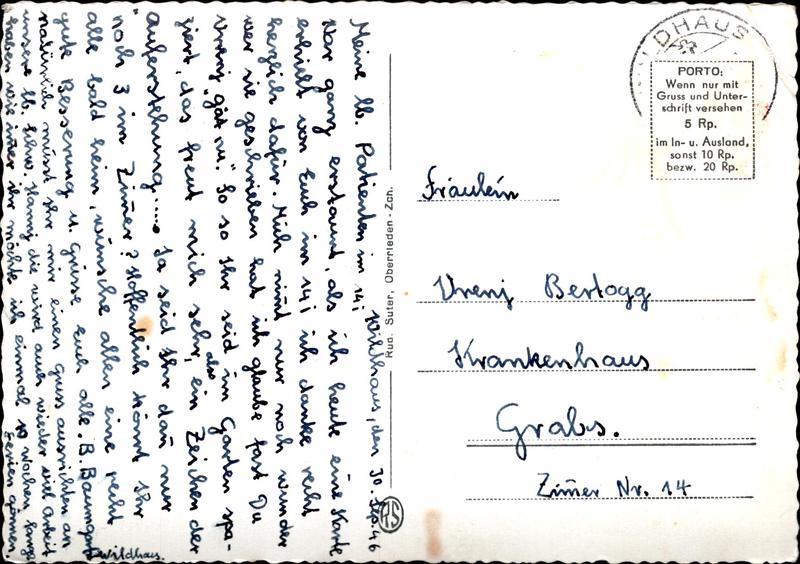 Wildhaus, den 30. Sep. 46
Meine lb. Patienten im 14!
War ganz erstaunt, als ich heute eine Karte
erhielt von Euch im 14! ich danke recht
herzlich dafür. Mich nimt nur noch wunder
wer sie geschrieben hat ich glaube fast Du
Vreny "gät nu." So so Ihr seid im Garten spa-
ziert, das freut mich sehr, also ein Zeichen der
Auferstehung..... Ja seid Ihr dan̄ nur
noch 3 im Zim̄er? Hoffentlich kön̄t Ihr
alle bald heim, wünsche allen eine recht
gute Besserung u. Grüsse Euch alle. B. Baumgart
Wildhaus.
natürlich müsst Ihr mir einen Gruss ausrichten an
unsere lb. Schw. Hanny die wird auch wieder viel Arbeit
haben wie im̄er ihr möchte ich einmal 10 Wochen lang
Ferien gönnen
Rud. Suter, Oberrieden - Zch.
RS
WILDHAUS
PORTO:
Wenn nur mit
Gruss und Unter-
schrift versehen
5 Rp.
im In- u. Ausland,
sonst 10 Rp.
bezw. 20 Rp.
Fräulein
Vrenj Bertogg
Krankenhaus
Grabs.
Zim̄er Nr. 14